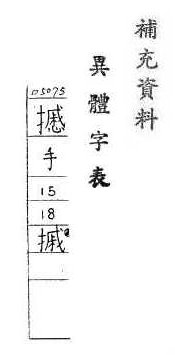 補充資料
異體字表
05075
手
15
18
摵